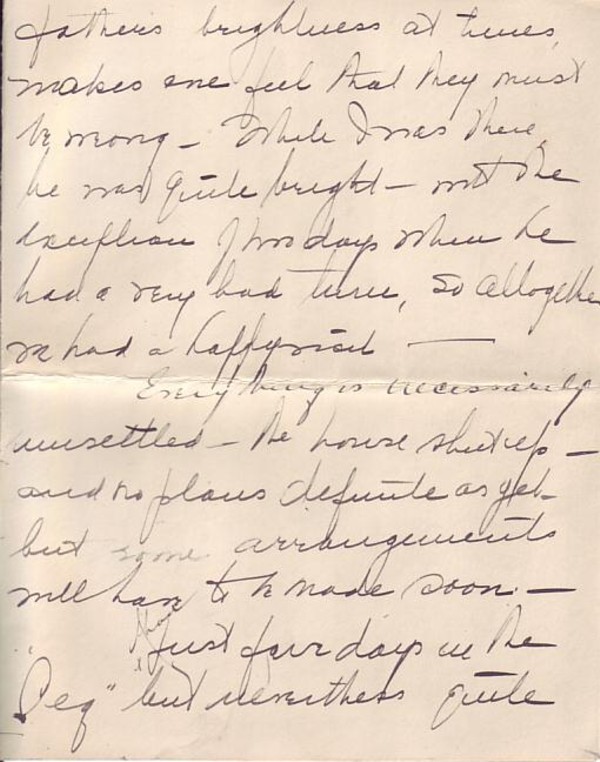 father's brightness at times,
makes one feel that they must
be wrong - While I was there,
he was quite bright - with the
exception of two days when he
had a very bad turn, so altogether
we had a happy visit —
Everything is necessarily
unsettled - the house shut up -
and no plans definite as yet -
but some arrangements
will have to be made soon. -
Just four days in the
"Peg" but nevertheless quite